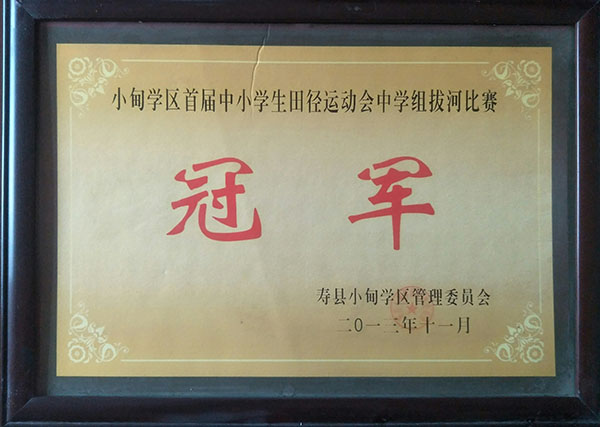 小甸学区首届中小学生田径运动会中学组拔河比赛
冠军
寿县小甸学区管理委员会
二〇一三年十一月